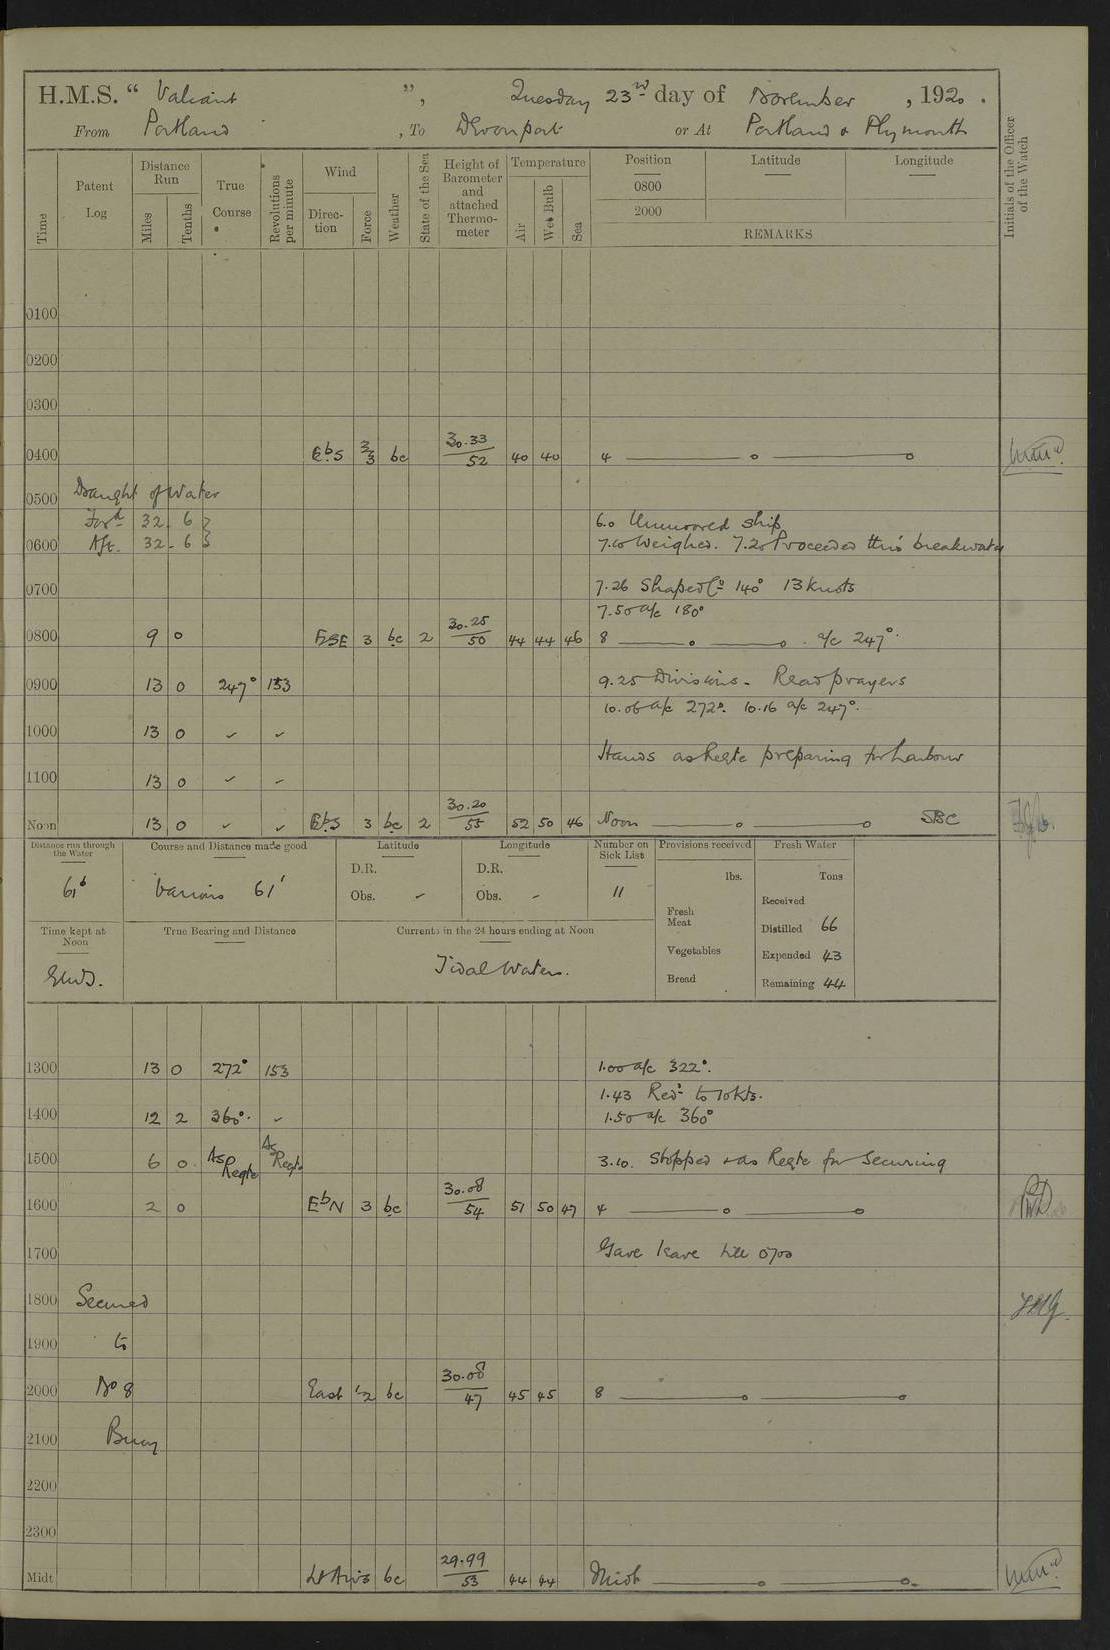 H.M.S. “ Valiant ”, Tuesday 23rd day of November , 1920 .
From Portland , To Devonport or At Portland & Plymouth
Time
Patent Log
Distance Run
Miles
Tenths
True Course
Revolutions per minute
Wind
Direction
Force
Weather
State of the Sea
Height of Barometer and attached Thermometer
Temperature
Air
Wet Bulb
Sea
Position Latitude Longitude
0800
2000
REMARKS
Initials of the Officer of the Watch
0100
0200
0300
0400 EbS 2/3 bc 30.33/52 40 40 4
0500 Draught of Water
Ford 32 - 6
6.0 Unmoored ship
0600 Aft. 32 - 6 7.10 Weighed. 7.20 Proceeded thro' breakwater
0700 7.26 Shaped Co 140° 13 knots
7.50 a/c 180°
0800 9 0 ESE 3 bc 2 30.25/50 44 44 46 8 a/c 247°.
0900 13 0 247° 153 9.25 Divisions - Read prayers
10.06 a/c 272°. 10.16 a/c 247°.
1000 13 0 ✓ ✓
Hands as Reqte preparing for harbour
1100 13 0 ✓ ✓
Noon 13 0 ✓ ✓ EbS 3 bc 2 30.20/55 52 50 46 Noon SBC
Distance run through the Water
61
Course and Distance made good
Various 61'
Latitude
D.R.
Obs. -
Longitude
D.R.
Obs. -
Number on Sick List
11
Provisions received
lbs.
Fresh Meat
Vegetables
Bread
Fresh Water
Tons
Received
Distilled 66
Expended 43
Remaining 44
Time kept at Noon
True Bearing and Distance
Currents in the 24 hours ending at Noon
Tidal Waters.
1300 13 0 272° 153 1.00 a/c 322°.
1.43 Red. to 10 Kts.
1400 12 2 360°. ✓ 1.50 a/c 360°
1500 6 0. As Reqte As Reqte 3.10. Stopped & as Reqte for Securing
1600 2 0 EbN 3 bc 30.08/54 51 50 47 4
1700 Gave leave till 0700
1800 Secured
1900 to
2000 No 8 East 1/2 bc 30.08/47 45 45 8
2100 Buoy
2200
2300
Midt Lt Airs bc 29.99/53 44 44 Midt